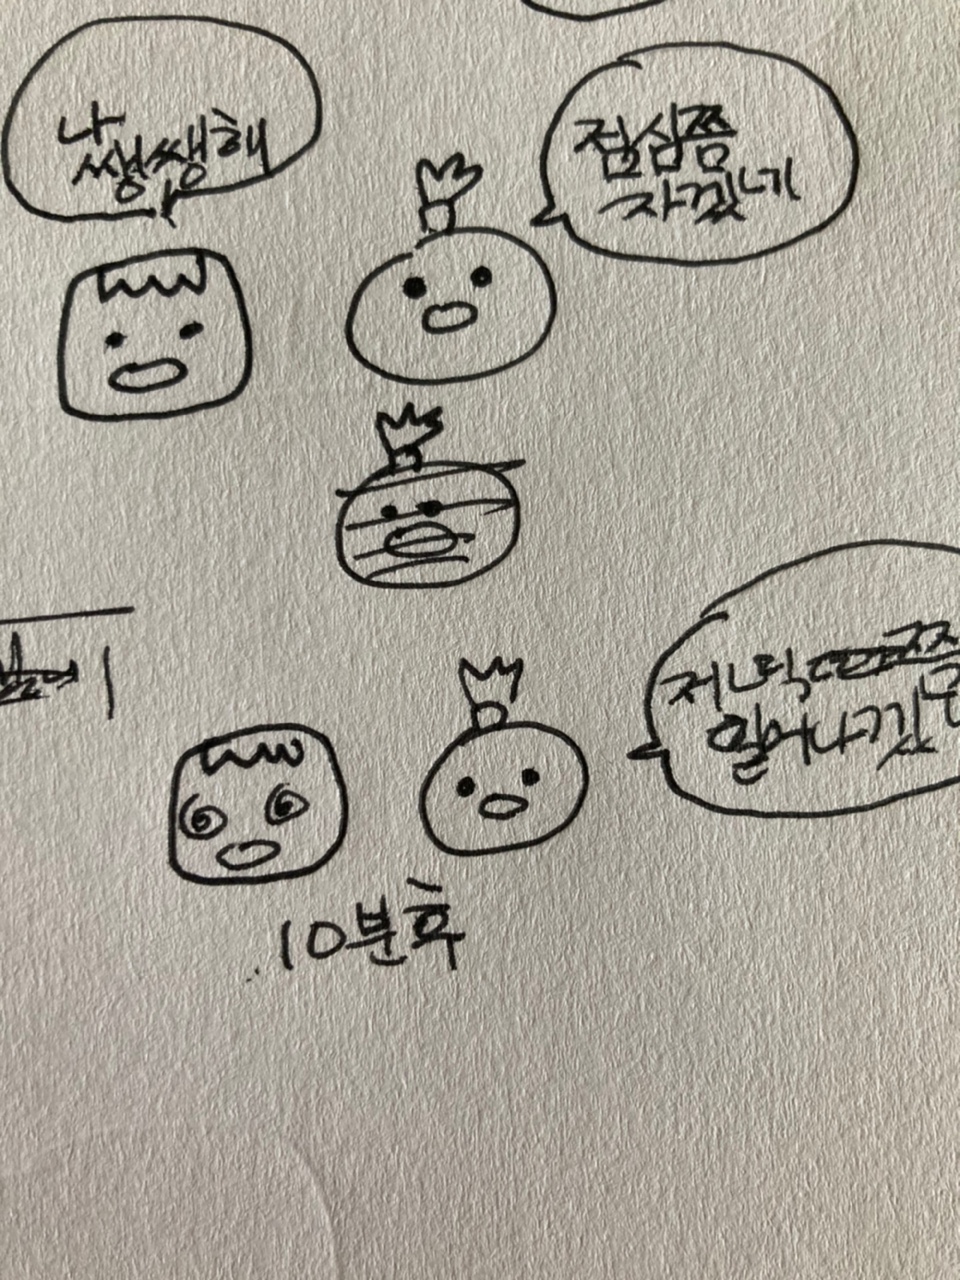 나
쌩쌩해
점심쯤
자겠네
저녁
일어나겠
10분후